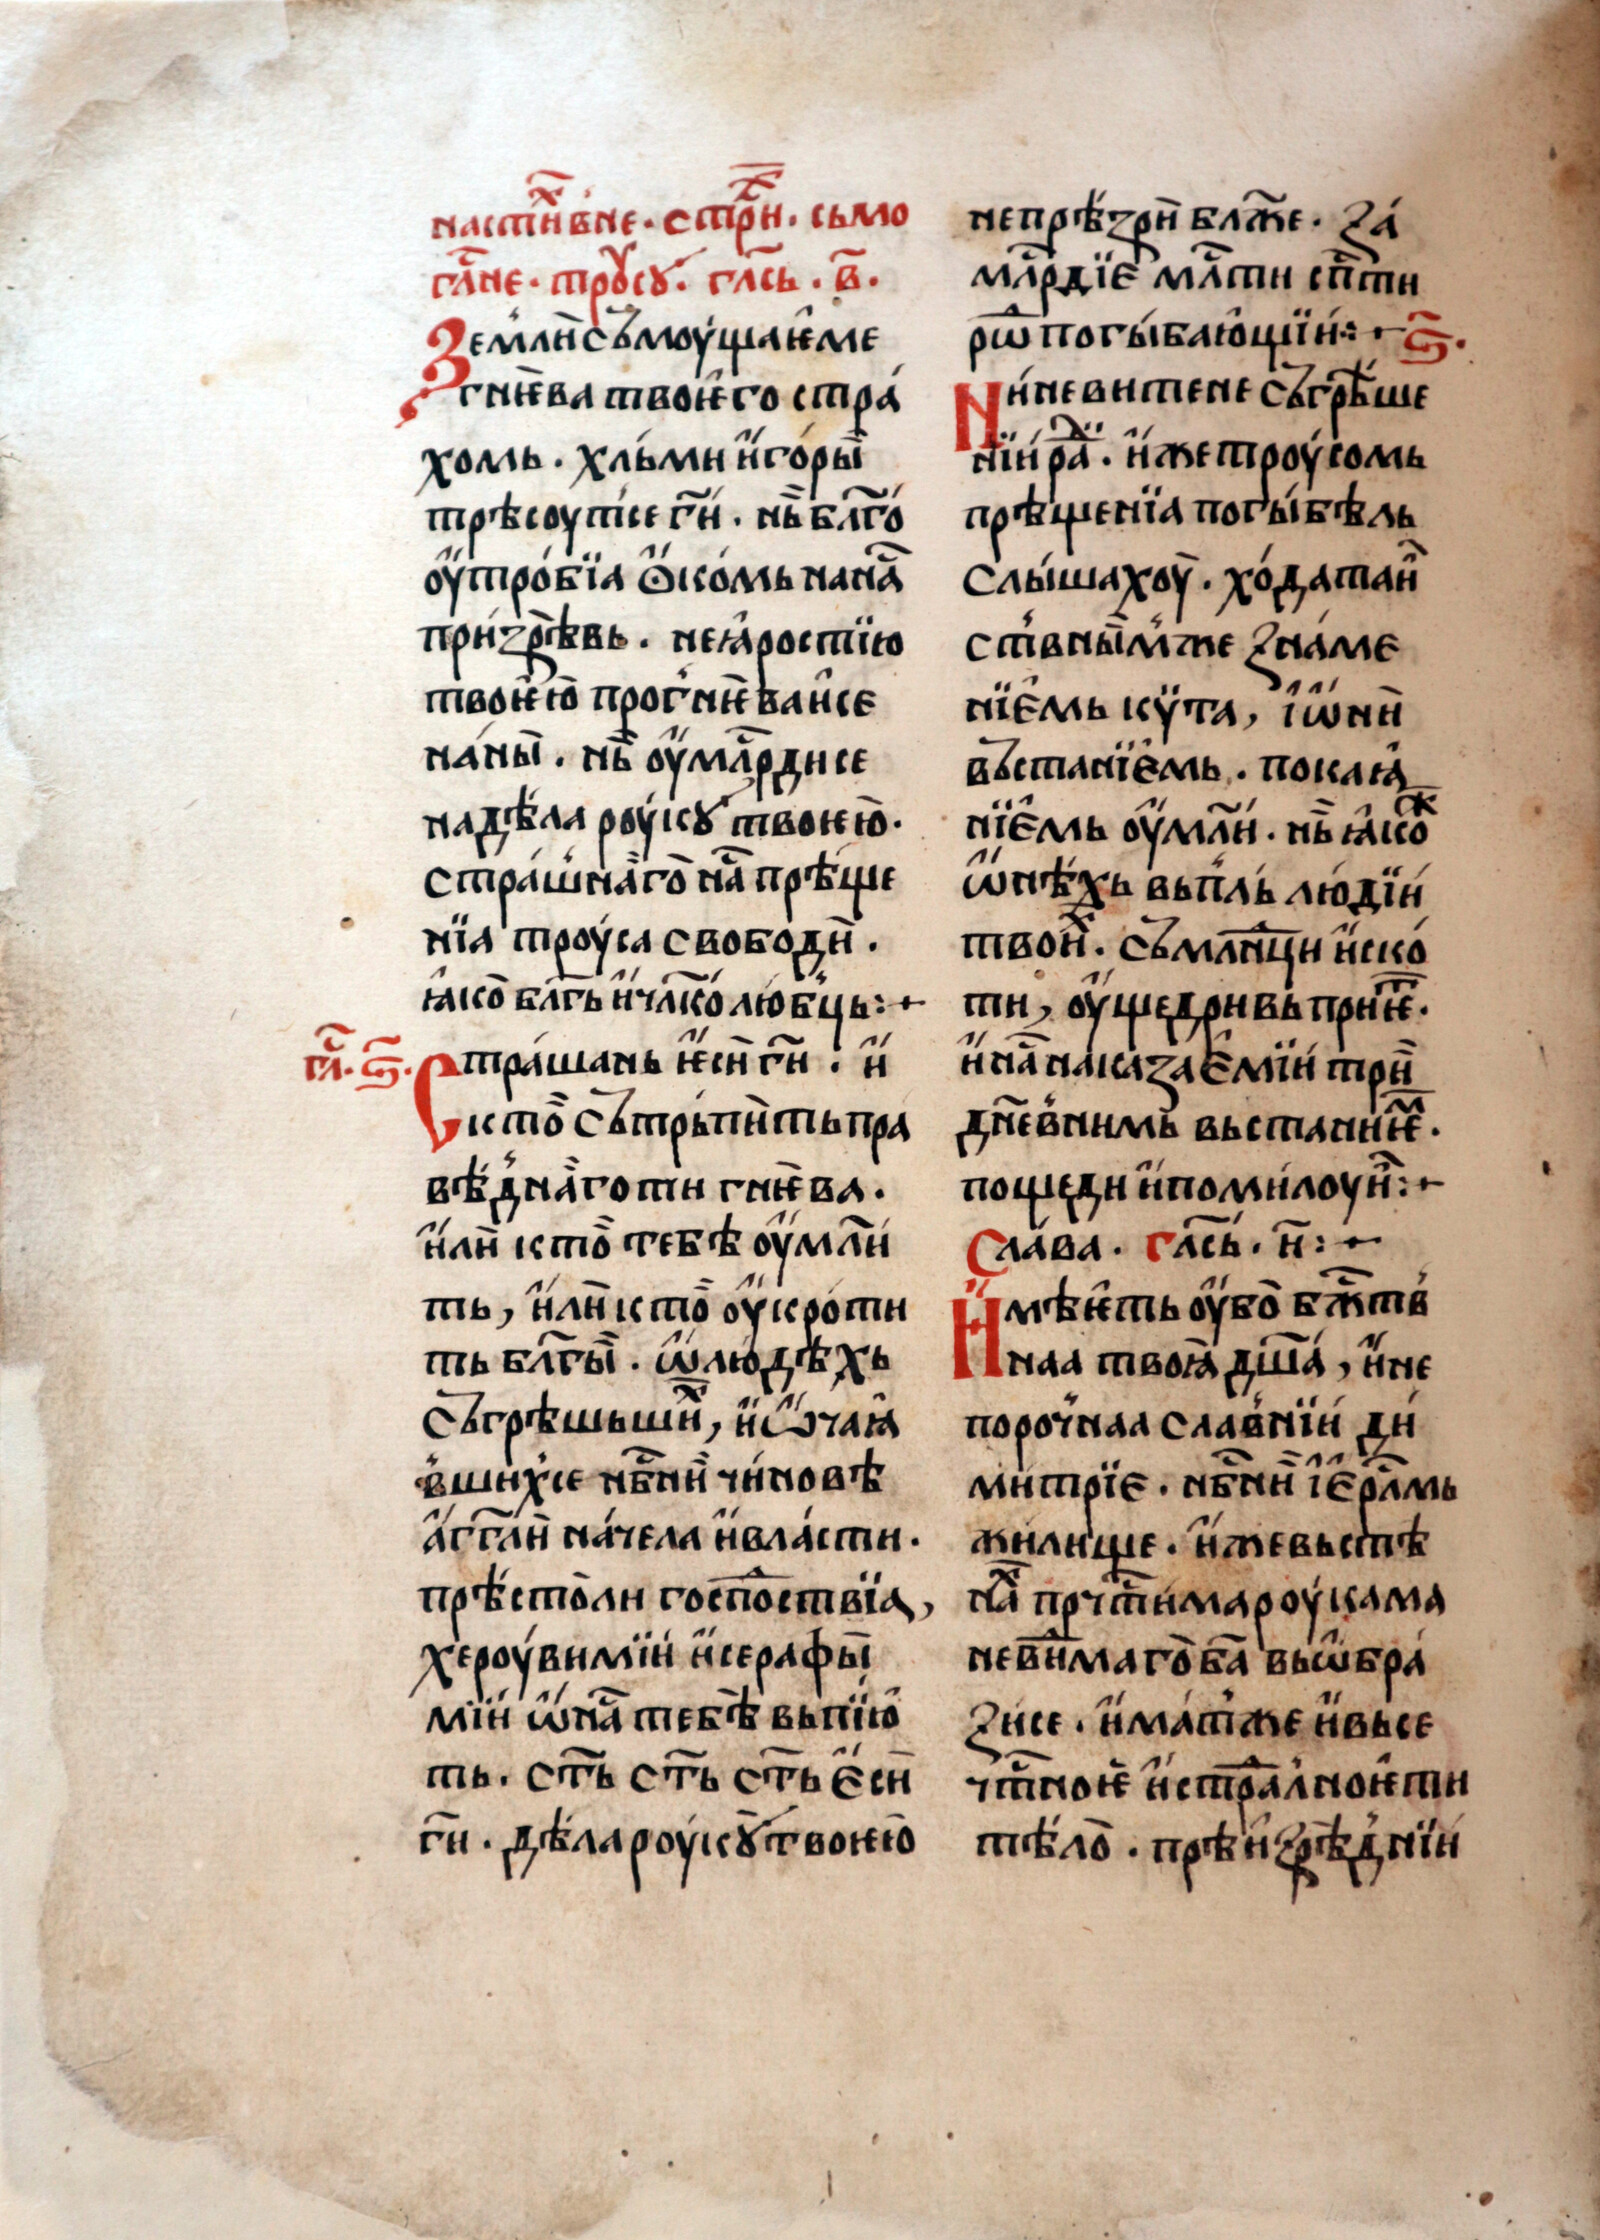 настн҃вх҃не · стр҃нх · сьмо
гл҃не · трꙋсꙋ · гл҃сь · в҃ ·
Земли съмоущаѥме
гнѥва твоѥго стра
хомь · хльми и҆горы
трѣсоутсе г҃и · нь бл҃го
оутробїа ѻ҆комь нана҃
призрѣвь · неꙗростїю
твоѥю прогнѥваисе
наны · нь оумл҃рдисе
надѣла роукꙋ твоѥю ·
страшнаго на҃ прѣще
нїа троуса свободи ·
ꙗко бл҃гь и҆чл҃колюбць :~
гл҃ · ѕ҃ ·
Страшань ѥси г҃и · и҆
кто сътрьпить пра
вѣднаготи гнѥва ·
или кто тебѣ оумл҃и
ть, или кто оукроти
ть бл҃гы · ѡ҆людѣхь
съгрѣшьших, и҆ѿчаꙗ
вшихсе нб҃ни чиновѣ
а҆гг҃ли начела и҆власти ·
прѣстоли госпо҃ствїа,
хероувимїи и҆серафы
мїи ѡ҆на҃ тебѣ вьпїю
ть · ст҃ь ст҃ь ст҃ь ѥси
г҃и · дѣла роукꙋ твоѥю
непрѣзри бл҃же · За
мл҃рдїе мл҃сти сп҃ти
рѡ҃ погыбающїи :~ ѕ҃ ·
Ниневитене съгрѣше
нїи ра҃ди · и҆же троусомь
прѣщенїа погыбѣль
слышахоу · ходатаи
ствным же знаме
нїемь кѵта, і҆ѡни
въстанїемь · покаꙗ
нїемь оумл҃и · нь ꙗкож
ѡ҆нѣхь вьпль людїи
твоих · съмл҃нци и҆ско
ти, оущедривь приѥт ·
и҆на҃ наказаемїи три
дневнимь вьстаниѥм ·
пощеди и҆помилоуи :~
Слава · гл҃сь · и҃ :~
Имѣѥть оубо бж҃тв
наа твоꙗ дш҃а, и҆не
порочнаа славнїи ди
митрїе · нб҃ни і҆ер҃лмь
жилище · и҆жевьстѣ
нах прч҃тима роукама
неви҃маго ба҃ вьѡбра
зисе · и҆мат же и҆вьсе
чт҃ноѥ и҆стра҃лноѥти
тѣло · прѣи҆зрѣднїи